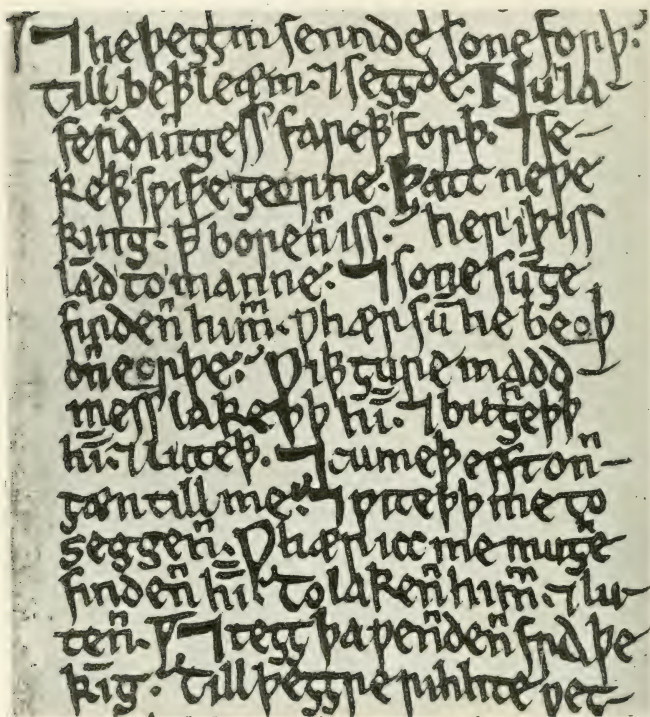 ¶ ⁊ he þeȝȝm sennde sone forþ.
till beþþleæm. ⁊ seȝȝde. Nu la-
ferdinngess fareþþ forþ. ⁊ se-
keþþ swiþe ȝeorne. Þatt neƿe
king. þ borenn iss. her i þiss
land to manne. ⁊ sone sū ȝe
findenn himm. ƿhær sū he beoþ
onn eorþe. Ƿiþþ ȝure madd-
mess lakeþþ hī. ⁊ buȝheþþ
hī. ⁊ luteþþ. ⁊ cumeþþ efft onn-
ȝæn till me. ⁊ ƿiteþþ me to
seggenn. Ƿhær icc me muȝhe
findenn hī. To lakenn himm. ⁊ lu-
tenn. ¶ ⁊ teȝȝ þa ƿenndenn fra þe
kīg. Till þeȝȝre rihhte ƿeȝ-